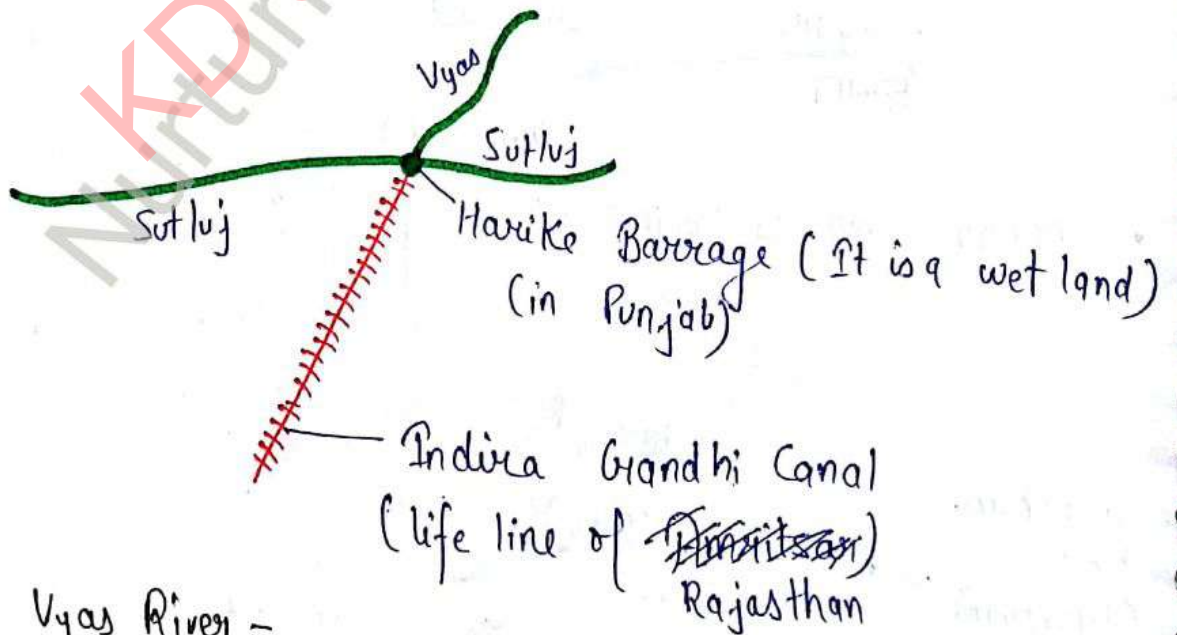 KD
Nurtun
Vyas
Sutluj
Sutluj
Harike Barrage (It is a wet land)
(in Punjab)
Indira Gandhi Canal
(life line of Amritsar)
Rajasthan
Vyas River -